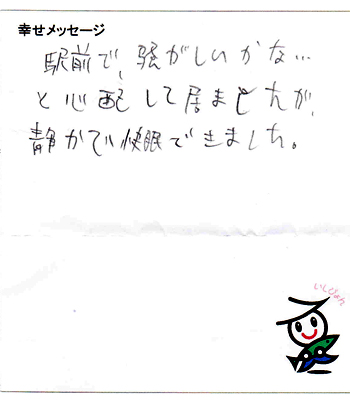 幸せメッセージ
駅前で、騒がしいかな…
と心配して居ましたが、
静かで快眠できました。